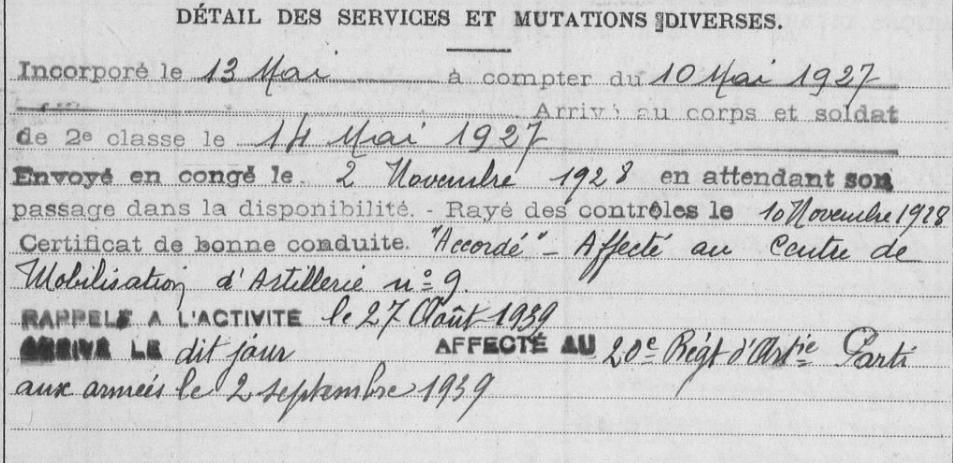 DÉTAIL DES SERVICES ET MUTATIONS DIVERSES.
Incorporé le 13 Mai à compter du 10 Mai 1927
Arrivé au corps et soldat
de 2e classe le 14 Mai 1927
Envoyé en congé le 2 Novembre 1928 en attendant son
passage dans la disponibilité. - Rayé des contrôles le 10 Novembre 1928
Certificat de bonne conduite. "Accordé" - Affecté au Centre de
Mobilisation d'Artillerie n° 9.
RAPPELÉ A L'ACTIVITE le 27 Août 1939
ARRIVÉ LE dit jour AFFECTÉ AU 20e Régt d'Artie Parti
aux armées le 2 septembre 1939